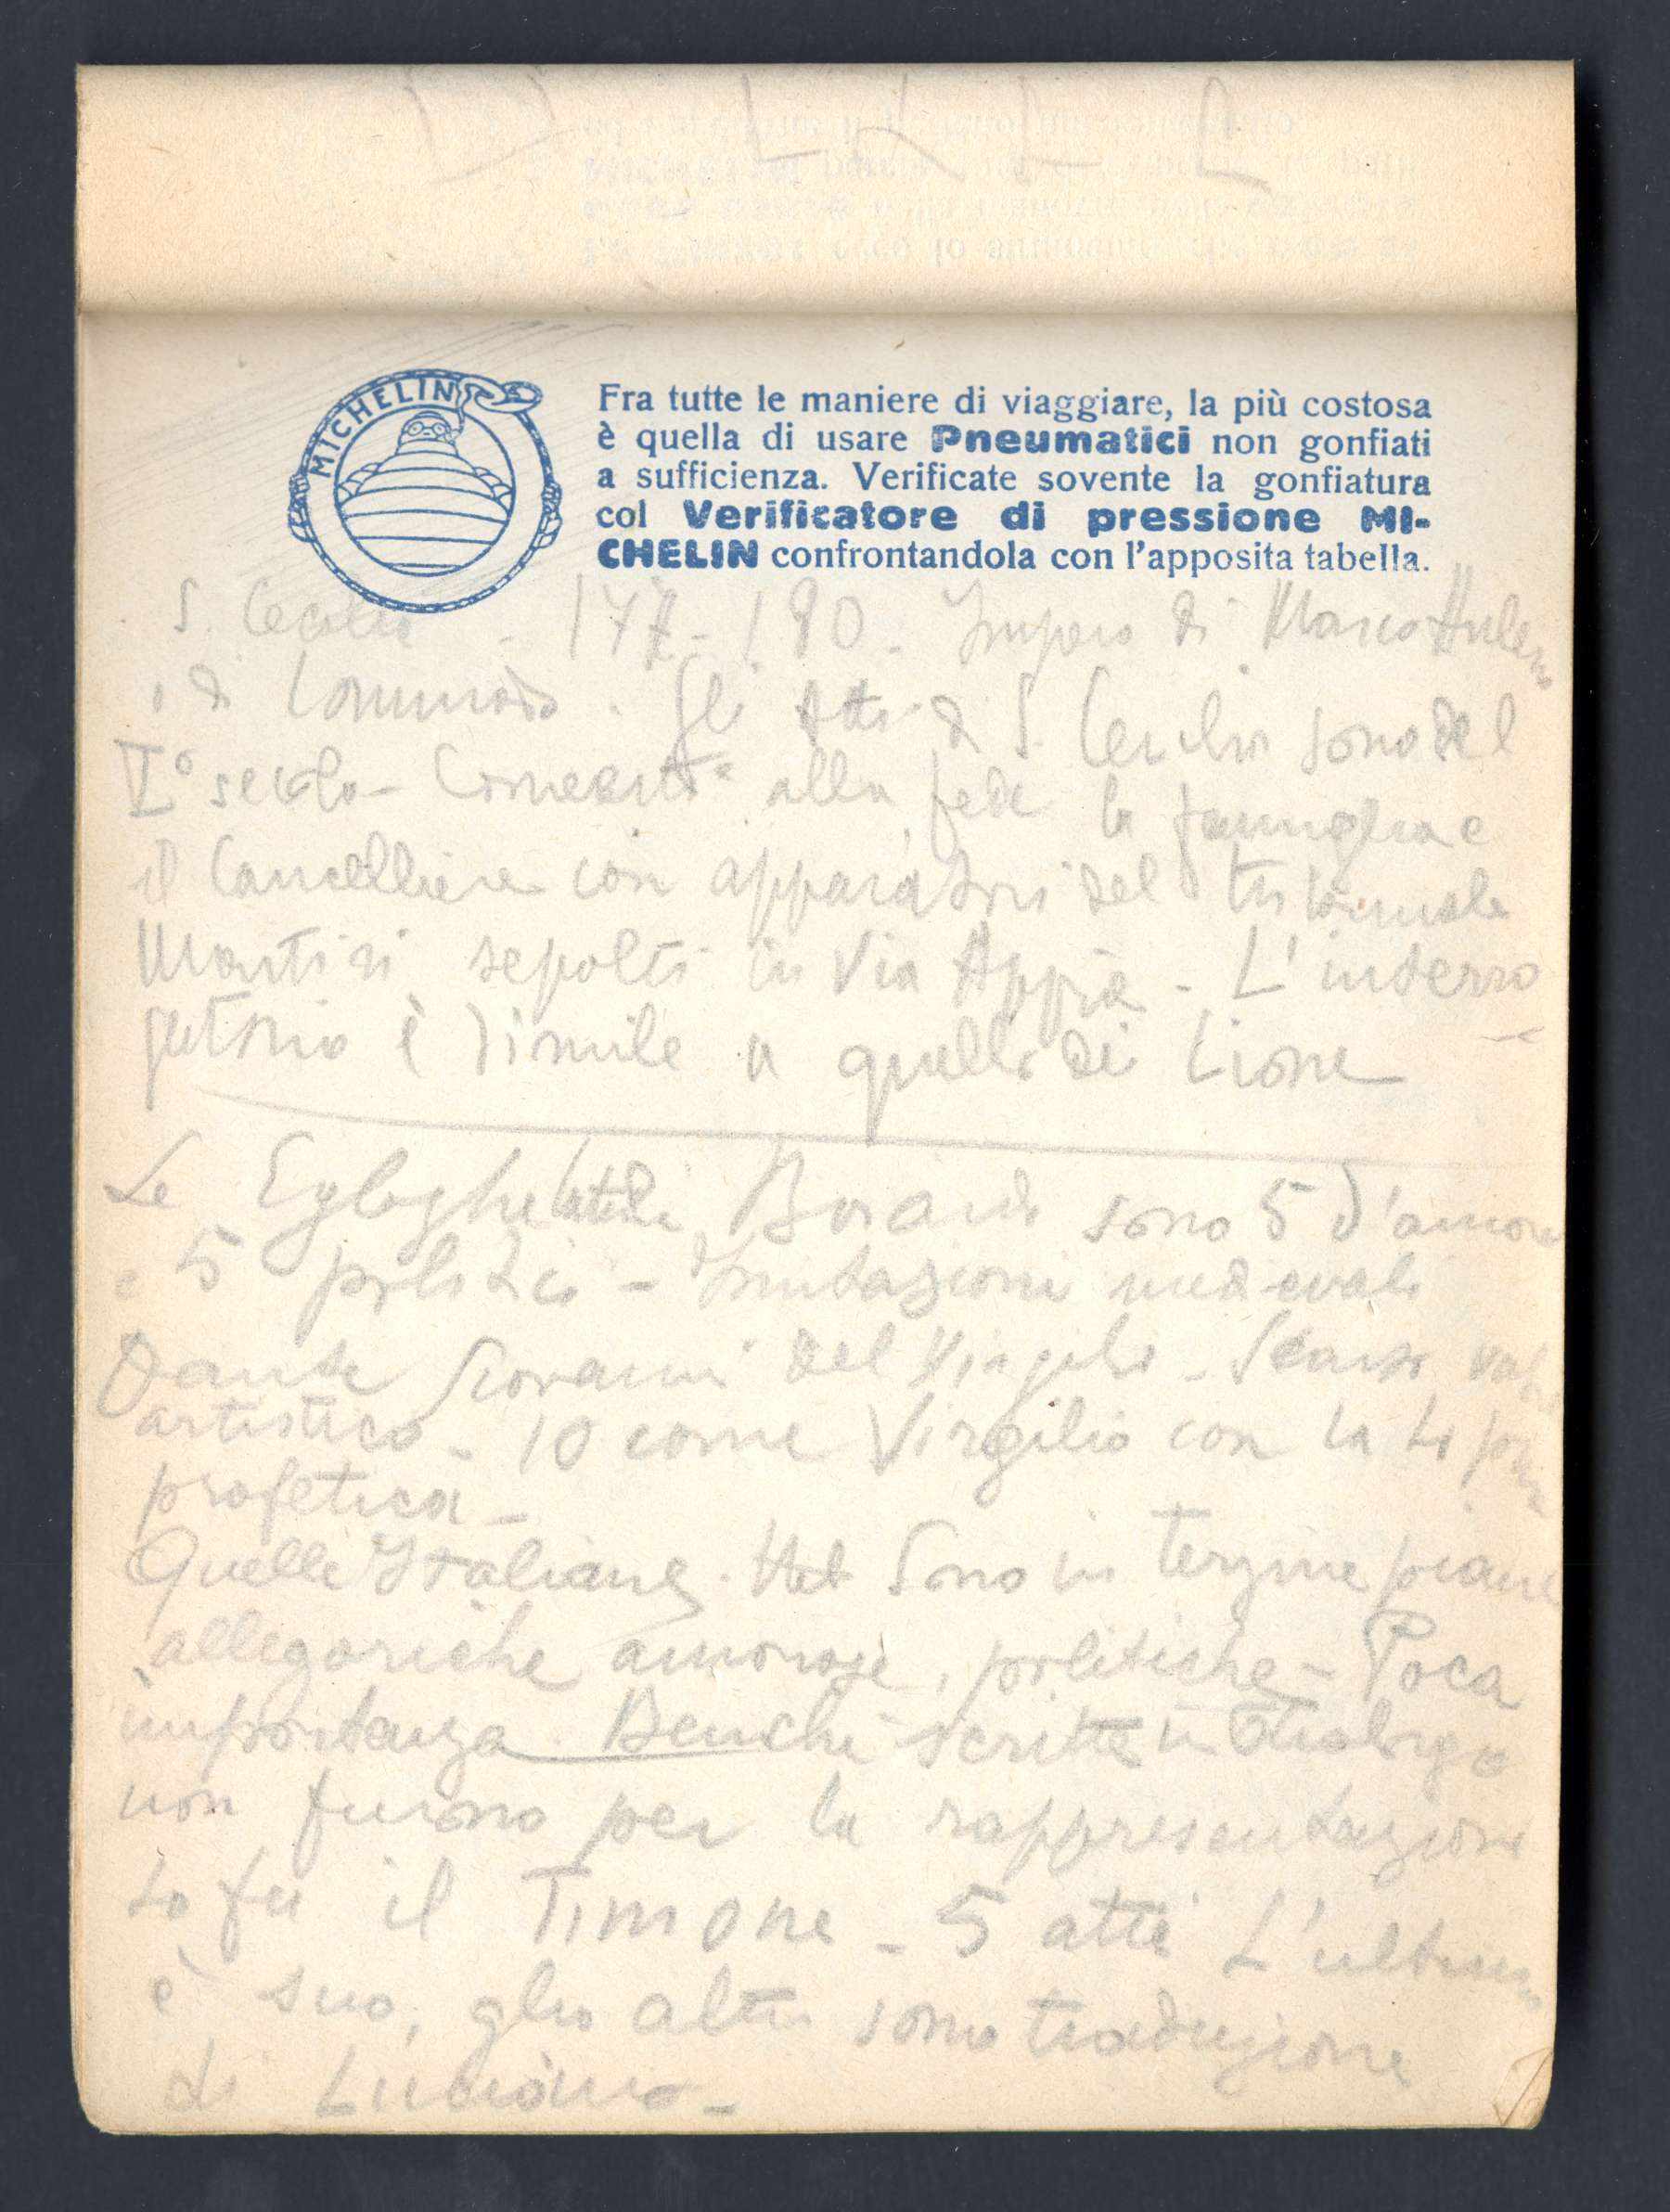 MICHELIN
Fra tutte le maniere di viaggiare, la più costosa
è quella di usare Pneumatici non gonfiati
a sufficienza. Verificate sovente la gonfiatura
col Verificatore di pressione MI-
CHELIN confrontandola con l'apposita tabella.
S. Cecilia - 177-180. Impero di Marco Aurelio
e di Commodo. Gli Atti di S. Cecilia sono del
Vº secolo - alla fede la famiglia e
il Cancelliere con apparatori del tribunale
Martiri sepolti in Via Appia - L'interro
gatorio è simile a quello di Lione
Le Egloghe latine Boiardo sono 5 d'amore
e 5 politici - Imitazioni medievali
Dante Giovanni del Virgilio - Scarso valore
artistico - 10 come Virgilio con la 4
profetica -
Quelle Italiane. Sono in terzine piane
allegoriche amorose, politiche - Poca
importanza. Benché scritte in dialogo
non furono per la rappresentazione
Lo fu il Timone - 5 atti L'ultimo
è suo, gli altri sono traduzione
di Luciano -